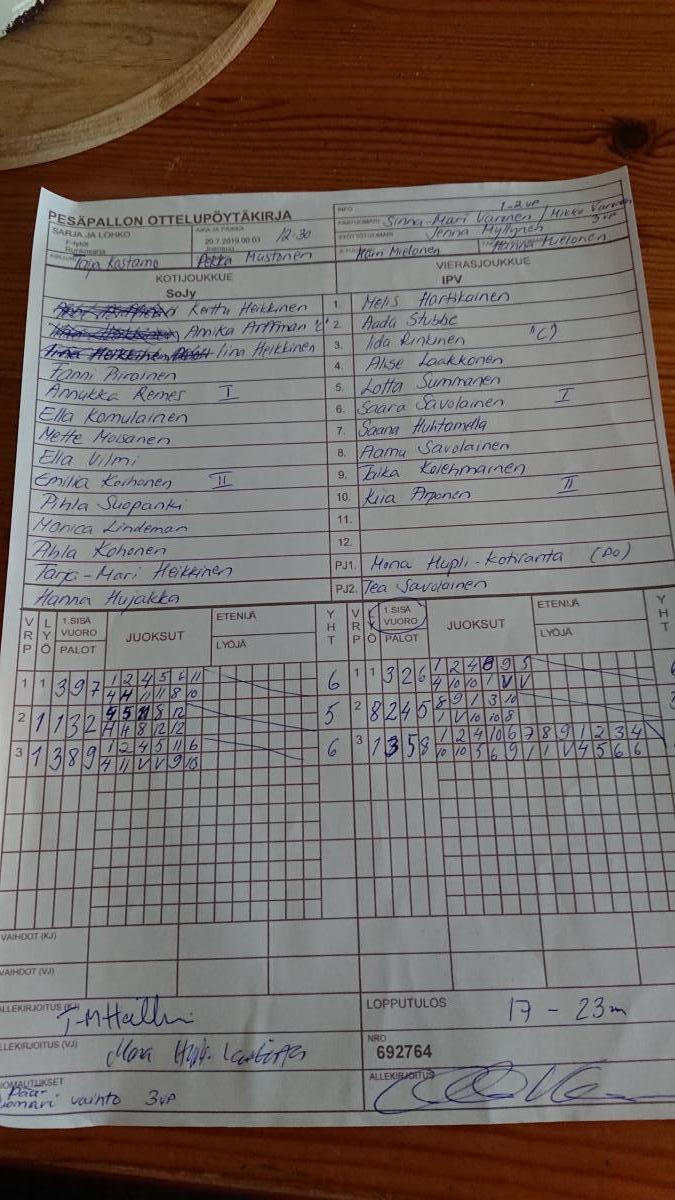 PESÄPALLON OTTELUPÖYTÄKIRJA
INFO 1-2 VP
PÄÄTUOMARI Sinna-Mari Varonen / Mikko Varonen 3 VP
SARJA JA LOHKO
F-tytöt
Runkosarja
AIKA JA PAIKKA
20.7.2019 00:03 12.30
Joensuu
SYÖTTÖTUOMARI Jenna Myllynen
KIRJURI Taija Rastamo Pekka Mustonen
2-TUOMARI Harri Mielonen Hanna Mielonen
KOTIJOUKKUE
VIERASJOUKKUE
SoJy
IPV
Kerttu Heikkinen
1. Melis Hartikainen
Annika Arffman "C"
2. Aada Stubbe
Iina Heikkinen
3. Iida Rinkinen "C)
Fanni Piiroinen
4. Alise Laakkonen
Annukka Remes I
5. Lotta Summanen
Ella Komulainen
6. Saara Savolainen I
Mette Moisanen
7. Saana Huhtamella
Ella Vilmi
8. Aamu Savolainen
Emilia Korhonen II
9. Taika Kolehmainen
Pihla Suopanki
10. Kiia Arponen II
Monica Lindeman
11.
Pihla Kohonen
12.
Tarja-Mari Heikkinen
PJ1. Mona Hupli-Kotiranta (PO)
Hanna Hujakka
PJ2. Tea Savolainen
VRP LYÖ 1.SISÄ VUORO PALOT JUOKSUT ETENIJÄ LYÖJÄ YHT
VRP LYÖ 1.SISÄ VUORO PALOT JUOKSUT ETENIJÄ LYÖJÄ YHT
1 1 3 9 7 1 2 4 5 6 11 6
4 4 11 11 8 10
1 1 3 2 6 1 2 4 8 9 5
4 10 10 1 V V
2 1 1 3 2 4 5 11 8 12 5
4 4 8 12 12
2 8 2 4 5 8 9 1 3 10
1 V 10 10 8
3 1 3 8 9 1 2 4 5 11 6 6
4 11 V V 9 10
3 1 3 5 8 1 2 4 10 6 7 8 9 1 2 3 4
10 10 5 6 9 1 1 V 4 5 6 6
VAIHDOT (KJ)
VAIHDOT (VJ)
ALLEKIRJOITUS (KJ)
LOPPUTULOS 17 - 23
ALLEKIRJOITUS (VJ)
NRO
692764
HUOMAUTUKSET
Päätuomari vaihto 3 VP
ALLEKIRJOITUS